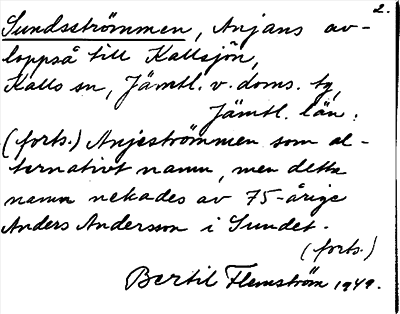 2.
Sundsströmmen, Anjans av-
loppså till Kallsjön,
Kalls sn, Jämtl. v. doms. tg,
Jämtl. län.
(forts.) Anjeströmmen som al-
ternativt namn, men detta
namn nekades av 75-årige
Anders Andersson i Sundet.
(forts.)
Bertil Flemström 1949.